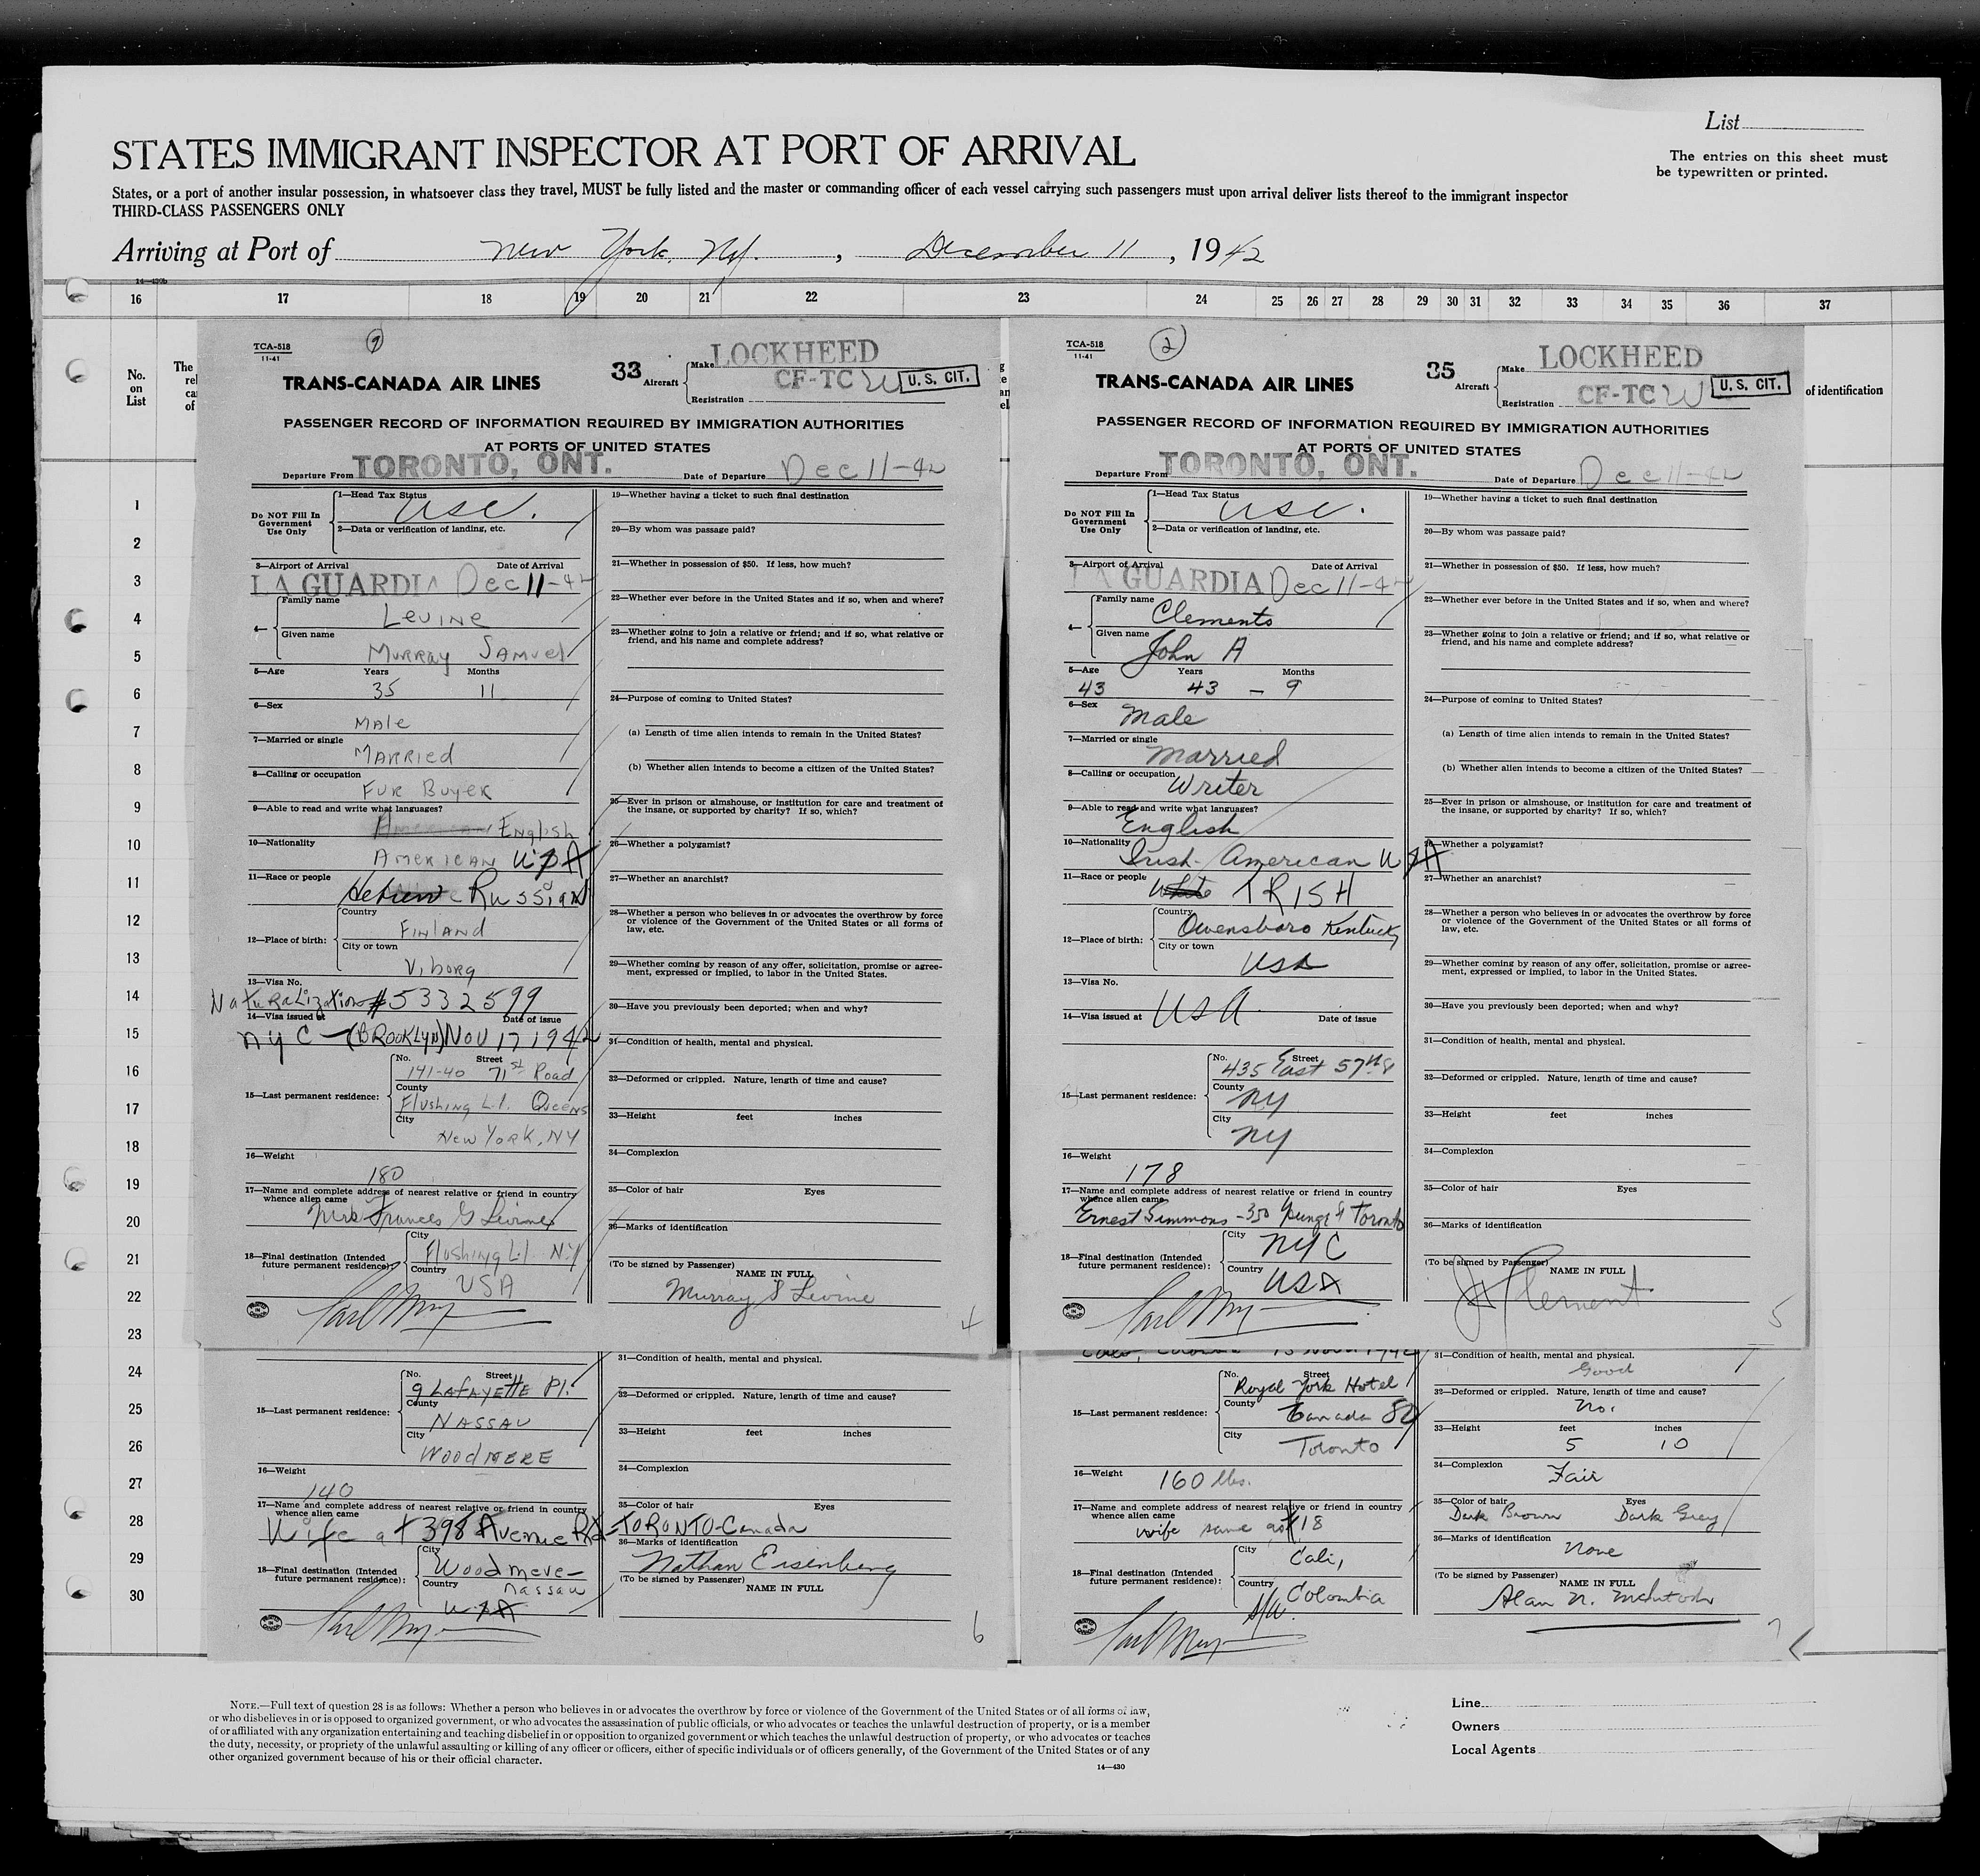 List
STATES IMMIGRANT INSPECTOR AT PORT OF ARRIVAL
The entries on this sheet must
be typewritten or printed.
States, or a port of another insular possession, in whatsoever class they travel, MUST be fully listed and the master or commanding officer of each vessel carrying such passengers must upon arrival deliver lists thereof to the immigrant inspector
THIRD-CLASS PASSENGERS ONLY
Arriving at Port of New York, NY. , December 11 , 1942
16 17 18 19 20 21 22 23 24 25 26 27 28 29 30 31 32 33 34 35 36 37
No.
on
List
The
rel
ca
of
of identification
1
2
3
4
5
6
7
8
9
10
11
12
13
14
15
16
17
18
19
20
21
22
23
24
25
26
27
28
29
30
TCA-518
11-41
33
LOCKHEED
Aircraft
Make
CF-TC W
U. S. CIT.
Registration
TRANS-CANADA AIR LINES
PASSENGER RECORD OF INFORMATION REQUIRED BY IMMIGRATION AUTHORITIES
AT PORTS OF UNITED STATES
Departure From TORONTO, ONT. Date of Departure Dec 11-42
Do NOT Fill In
Government
Use Only
1—Head Tax Status
USC.
2—Data or verification of landing, etc.
3—Airport of Arrival Date of Arrival
LA GUARDIA Dec 11-42
4—
Family name
Levine
Given name
Murray Samuel
5—Age Years Months
35 11
6—Sex
Male
7—Married or single
Married
8—Calling or occupation
Fur Buyer
9—Able to read and write what languages?
American English
10—Nationality
American USA
11—Race or people
Hebrew Russian
12—Place of birth:
Country
Finland
City or town
Viborg
13—Visa No.
Naturalization #5332599
14—Visa issued at Date of issue
NYC—(BROOKLYN) Nov 17 1942
15—Last permanent residence:
No. Street
141-40 71st Road
County
Flushing L.I. Queens
City
New York, NY
16—Weight
180
17—Name and complete address of nearest relative or friend in country
whence alien came
Mrs Frances G Levine
18—Final destination (Intended
future permanent residence):
City
Flushing L.I. N.Y
Country
USA
19—Whether having a ticket to such final destination
20—By whom was passage paid?
21—Whether in possession of $50. If less, how much?
22—Whether ever before in the United States and if so, when and where?
23—Whether going to join a relative or friend; and if so, what relative or
friend, and his name and complete address?
24—Purpose of coming to United States?
(a) Length of time alien intends to remain in the United States?
(b) Whether alien intends to become a citizen of the United States?
25—Ever in prison or almshouse, or institution for care and treatment of
the insane, or supported by charity? If so, which?
26—Whether a polygamist?
27—Whether an anarchist?
28—Whether a person who believes in or advocates the overthrow by force
or violence of the Government of the United States or all forms of
law, etc.
29—Whether coming by reason of any offer, solicitation, promise or agree-
ment, expressed or implied, to labor in the United States.
30—Have you previously been deported; when and why?
31—Condition of health, mental and physical.
32—Deformed or crippled. Nature, length of time and cause?
33—Height feet inches
34—Complexion
35—Color of hair Eyes
36—Marks of identification
(To be signed by Passenger)
NAME IN FULL
Murray S Levine
4
TCA-518
11-41
2
35
LOCKHEED
Aircraft
Make
CF-TC W
U. S. CIT.
Registration
TRANS-CANADA AIR LINES
PASSENGER RECORD OF INFORMATION REQUIRED BY IMMIGRATION AUTHORITIES
AT PORTS OF UNITED STATES
Departure From TORONTO, ONT. Date of Departure Dec 11-42
Do NOT Fill In
Government
Use Only
1—Head Tax Status
USC.
2—Data or verification of landing, etc.
3—Airport of Arrival Date of Arrival
LA GUARDIA Dec 11-42
4—
Family name
Clements
Given name
John A
5—Age Years Months
43 43 - 9
6—Sex
Male
7—Married or single
Married
8—Calling or occupation
Writer
9—Able to read and write what languages?
English
10—Nationality
Irish-American USA
11—Race or people
White IRISH
12—Place of birth:
Country
Owensboro Kentucky
City or town
USA
13—Visa No.
14—Visa issued at USA Date of issue
15—Last permanent residence:
No. Street
435 East 57th
County
NY
City
NY
16—Weight
178
17—Name and complete address of nearest relative or friend in country
whence alien came
Ernest Simmons - 350 Toronto
18—Final destination (Intended
future permanent residence):
City
NYC
Country
USA
19—Whether having a ticket to such final destination
20—By whom was passage paid?
21—Whether in possession of $50. If less, how much?
22—Whether ever before in the United States and if so, when and where?
23—Whether going to join a relative or friend; and if so, what relative or
friend, and his name and complete address?
24—Purpose of coming to United States?
(a) Length of time alien intends to remain in the United States?
(b) Whether alien intends to become a citizen of the United States?
25—Ever in prison or almshouse, or institution for care and treatment of
the insane, or supported by charity? If so, which?
26—Whether a polygamist?
27—Whether an anarchist?
28—Whether a person who believes in or advocates the overthrow by force
or violence of the Government of the United States or all forms of
law, etc.
29—Whether coming by reason of any offer, solicitation, promise or agree-
ment, expressed or implied, to labor in the United States.
30—Have you previously been deported; when and why?
31—Condition of health, mental and physical.
32—Deformed or crippled. Nature, length of time and cause?
33—Height feet inches
34—Complexion
35—Color of hair Eyes
36—Marks of identification
(To be signed by Passenger)
NAME IN FULL
5
15—Last permanent residence:
No. Street
9 LAFAYETTE Pl.
County
NASSAU
City
WOODMERE
16—Weight
140
17—Name and complete address of nearest relative or friend in country
whence alien came
Wife at 398 Avenue Rd - TORONTO-Canada
18—Final destination (Intended
future permanent residence):
City
Woodmere-
Nassau
Country
USA
31—Condition of health, mental and physical.
32—Deformed or crippled. Nature, length of time and cause?
33—Height feet inches
34—Complexion
35—Color of hair Eyes
36—Marks of identification
Nathan Eisenberg
(To be signed by Passenger)
NAME IN FULL
6
15—Last permanent residence:
No. Street
Royal York Hotel
County
Canada
City
Toronto
16—Weight
160 lbs.
17—Name and complete address of nearest relative or friend in country
whence alien came
wife same as 18
18—Final destination (Intended
future permanent residence):
City
Cali,
Country
Colombia
S/A.
31—Condition of health, mental and physical.
Good
32—Deformed or crippled. Nature, length of time and cause?
No.
33—Height feet inches
5 10
34—Complexion
Fair
35—Color of hair Eyes
Dark Brown Dark Grey
36—Marks of identification
None
(To be signed by Passenger)
NAME IN FULL
Alan N. McIntosh
7
NOTE.—Full text of question 28 is as follows: Whether a person who believes in or advocates the overthrow by force or violence of the Government of the United States or of all forms of law,
or who disbelieves in or is opposed to organized government, or who advocates the assassination of public officials, or who advocates or teaches the unlawful destruction of property, or is a member
of or affiliated with any organization entertaining and teaching disbelief in or opposition to organized government or which teaches the unlawful destruction of property, or who advocates or teaches
the duty, necessity, or propriety of the unlawful assaulting or killing of any officer or officers, either of specific individuals or of officers generally, of the Government of the United States or of any
other organized government because of his or their official character.
14—430
Line
Owners
Local Agents